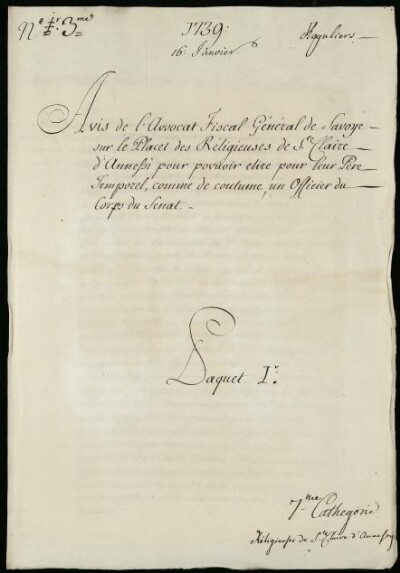 N.º 3.me
1739:
16 Janvier
Réguliers
Avis de l'Avvocat Fiscal Général de Savoye
sur le Placet des Réligieuses de S.te Claire
d'Annessi pour pouvoir elire pour leur Père
Temporel, comme de coutume, un Officier du
Corps du Senat.
Paquet I.r
7.me Cathegorie
Réligieuses de S.te Claire d'Annessy